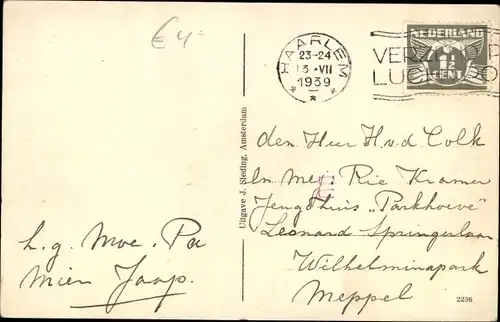 € 4=
HAARLEM
23-24
13·VII
1939
NEDERLAND
1½
CENT
VERZ
LUC
Uitgave J. Sleding, Amsterdam
den Heer H. v. d. Colk
En Mej. Rie Kramer
Jeugdhuis „Parkhoeve"
Leonard Springerlaan
Wilhelminapark
Meppel
h. g. Moe. Pa
Mien Jaap.
2236